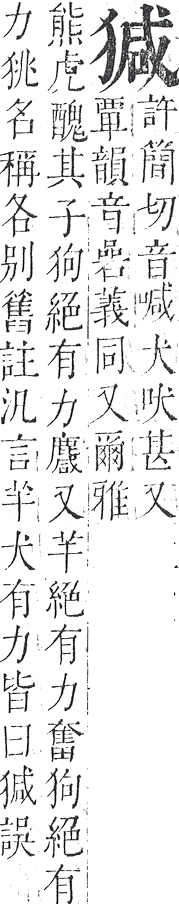 㺂許簡切音喊犬吠甚又
覃韻音嵒義同又爾雅
熊虎醜其子狗絕有力麙又羊絕有力奮狗絕有
力狣名稱各別舊註汎言羊犬有力皆曰㺂誤